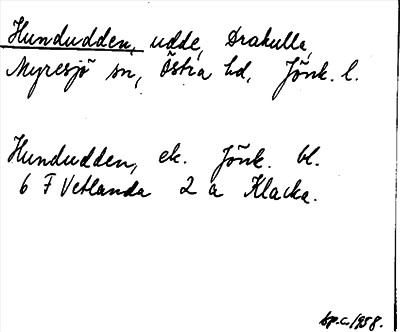 Hundudden, udde, Drakulla,
Myresjö sn, Östra hd, Jönk. l.
Hundudden, ek. Jönk. bl.
6 F Vetlanda 2 a Klacka.
sp.c. 1958.